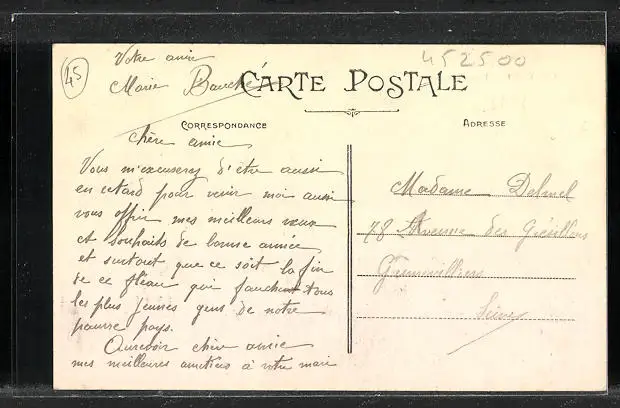 45
452500
Votre amie
Marie Bouché
CARTE POSTALE
CORRESPONDANCE
ADRESSE
chère amie
Vous m'excuserez d'etre aussi
en retard pour venir moi aussi
vous offrir mes meilleurs vœux
et souhaits de bonne année
et surtout que ce soit la fin
de ce fléau qui fauchent tous
les plus jeunes gens de notre
pauvre pays.
Aurevoir chère amie
mes meilleures amitiees à votre mari
Madame Delmel
78 Avenue des Grésillons
Gennevilliers
Seine